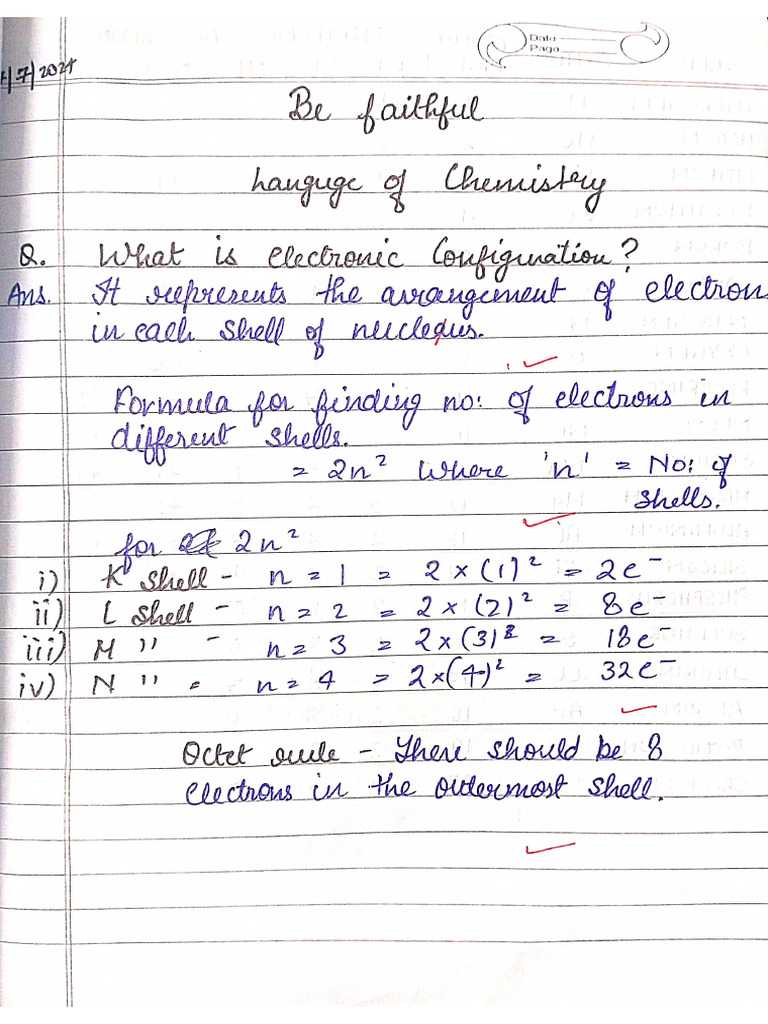 Date
Page
/7/2021
Be faithful
Languge of Chemistry
Q. What is electronic Configuration?
Ans. It represents the arrangement of electron
in each shell of nucleus.
Formula for finding no: of electrons in
different shells.
= 2n² where 'n' = No: of
shells.
for 2n²
i) K shell - n = 1 = 2 × (1)² = 2e⁻
ii) L shell - n = 2 = 2 × (2)² = 8e⁻
iii) M " - n = 3 = 2×(3)² = 18e⁻
iv) N " = n = 4 = 2×(4)² = 32e⁻
Octet rule - There should be 8
electrons in the outermost shell.